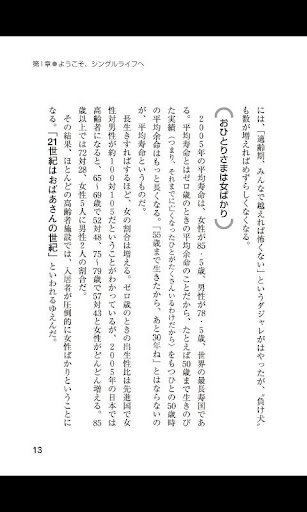 第1章●ようこそ、シングルライフへ
には、「適齢期、みんなで越えれば怖くない」というダジャレがはやったが、〝負け犬〟
も数が増えればめずらしくなくなる。
おひとりさまは女ばかり
2005年の平均寿命は、女性が85・5歳、男性が78・5歳、世界の最長寿国であ
る。平均寿命とはゼロ歳のときの平均余命のことだから、たとえば50歳まで生きのび
た実績（つまり、それまでに亡くなったひとがたくさんいるわけだから）をもつひとの50歳時
の平均余命はもっと長くなる。「55歳まで生きたから、あと30年ね」とはならないの
が、平均寿命というものだ。
長生きすればするほど、女の割合は増える。ゼロ歳のときの出生性比は先進国で女
性対男性が約100対105だということがわかっているが、2005年の日本では
高齢者になると、65〜69歳で52対48、75〜79歳で57対43と女性がどんどん増える。85
歳以上では72対28、女性5人に男性2人の割合だ。
その結果、ほとんどの高齢者施設では、入居者が圧倒的に女性ばかりということに
なる。「21世紀はおばあさんの世紀」といわれるゆえんだ。
13